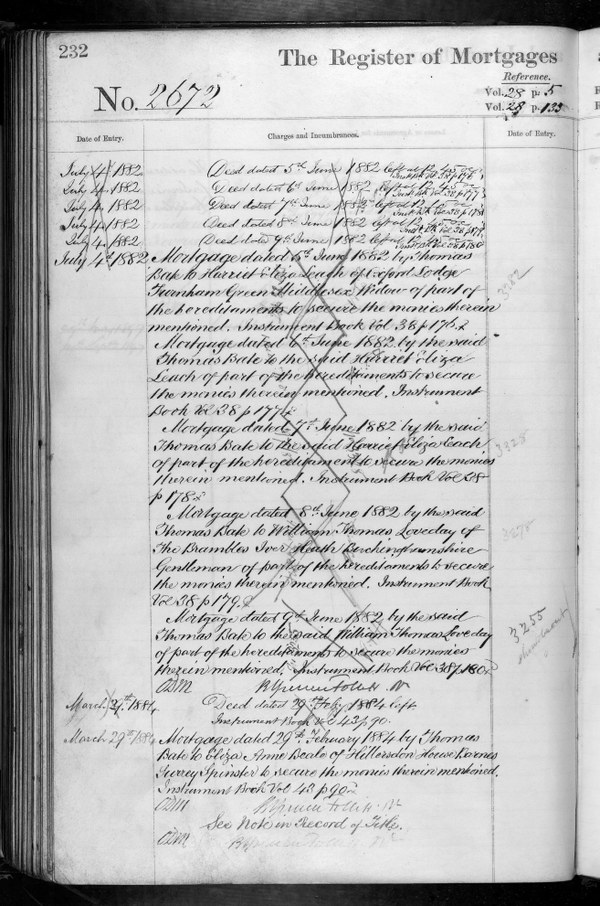 232
The Register of Mortgages
No. 2672
Reference.
Vol. 28 p. 5
Vol. 28 p. 133
Date of Entry.
Charges and Incumbrances.
Date of Entry.
July 4 1882 Deed dated 5th June 1882 left at 12.45
Inst Bk Vol 38 p 176
July 4 1882 Deed dated 6th June 1882 left at 12.45
Inst Bk Vol 38 p 177
July 4 1882 Deed dated 7th June 1882 left at 12
Inst Bk Vol 38 p 178
July 4 1882 Deed dated 8th June 1882 left at 12
Inst Bk Vol 38 p 179
July 4 1882 Deed dated 9th June 1882 left at 12
Inst Bk Vol 38 p 180
July 4th 1882 Mortgage dated 5th June 1882 by Thomas
Bate to Harriet Eliza Leach of Oxford Lodge
Turnham Green Middlesex Widow of part of
the hereditaments to secure the monies therein
mentioned. Instrument Book Vol 38 p 176.
3262
Mortgage dated 6th June 1882 by the said
Thomas Bate to the said Harriet Eliza
Leach of part of the hereditaments to secure
the monies therein mentioned. Instrument
Book Vol 38 p 177
Mortgage dated 7th June 1882 by the said
Thomas Bate to the said Harriet Eliza Leach
of part of the hereditament to secure the monies
therein mentioned. Instrument Book Vol 38
p 178
3328
Mortgage dated 8th June 1882 by the said
Thomas Bate to William Thomas Loveday of
The Brambles Iver Heath Buckinghamshire
Gentleman of part of the hereditaments to secure
the monies therein mentioned. Instrument Book
Vol 38 p 179.
3278
Mortgage dated 9th June 1882 by the said
Thomas Bate to the said William Thomas Loveday
of part of the hereditaments to secure the monies
therein mentioned. Instrument Book Vol 38 p 180
3255
March 29th 1884 Deed dated 29th Feby 1884 left
Instrument Book Vol 43 p 90.
March 29th 1884 Mortgage dated 29th February 1884 by Thomas
Bate to Eliza Anne Beale of Hillersdon House Barnes
Surrey Spinster to secure the monies therein mentioned.
Instrument Book Vol 43 p 90
See Note in Record of Title.